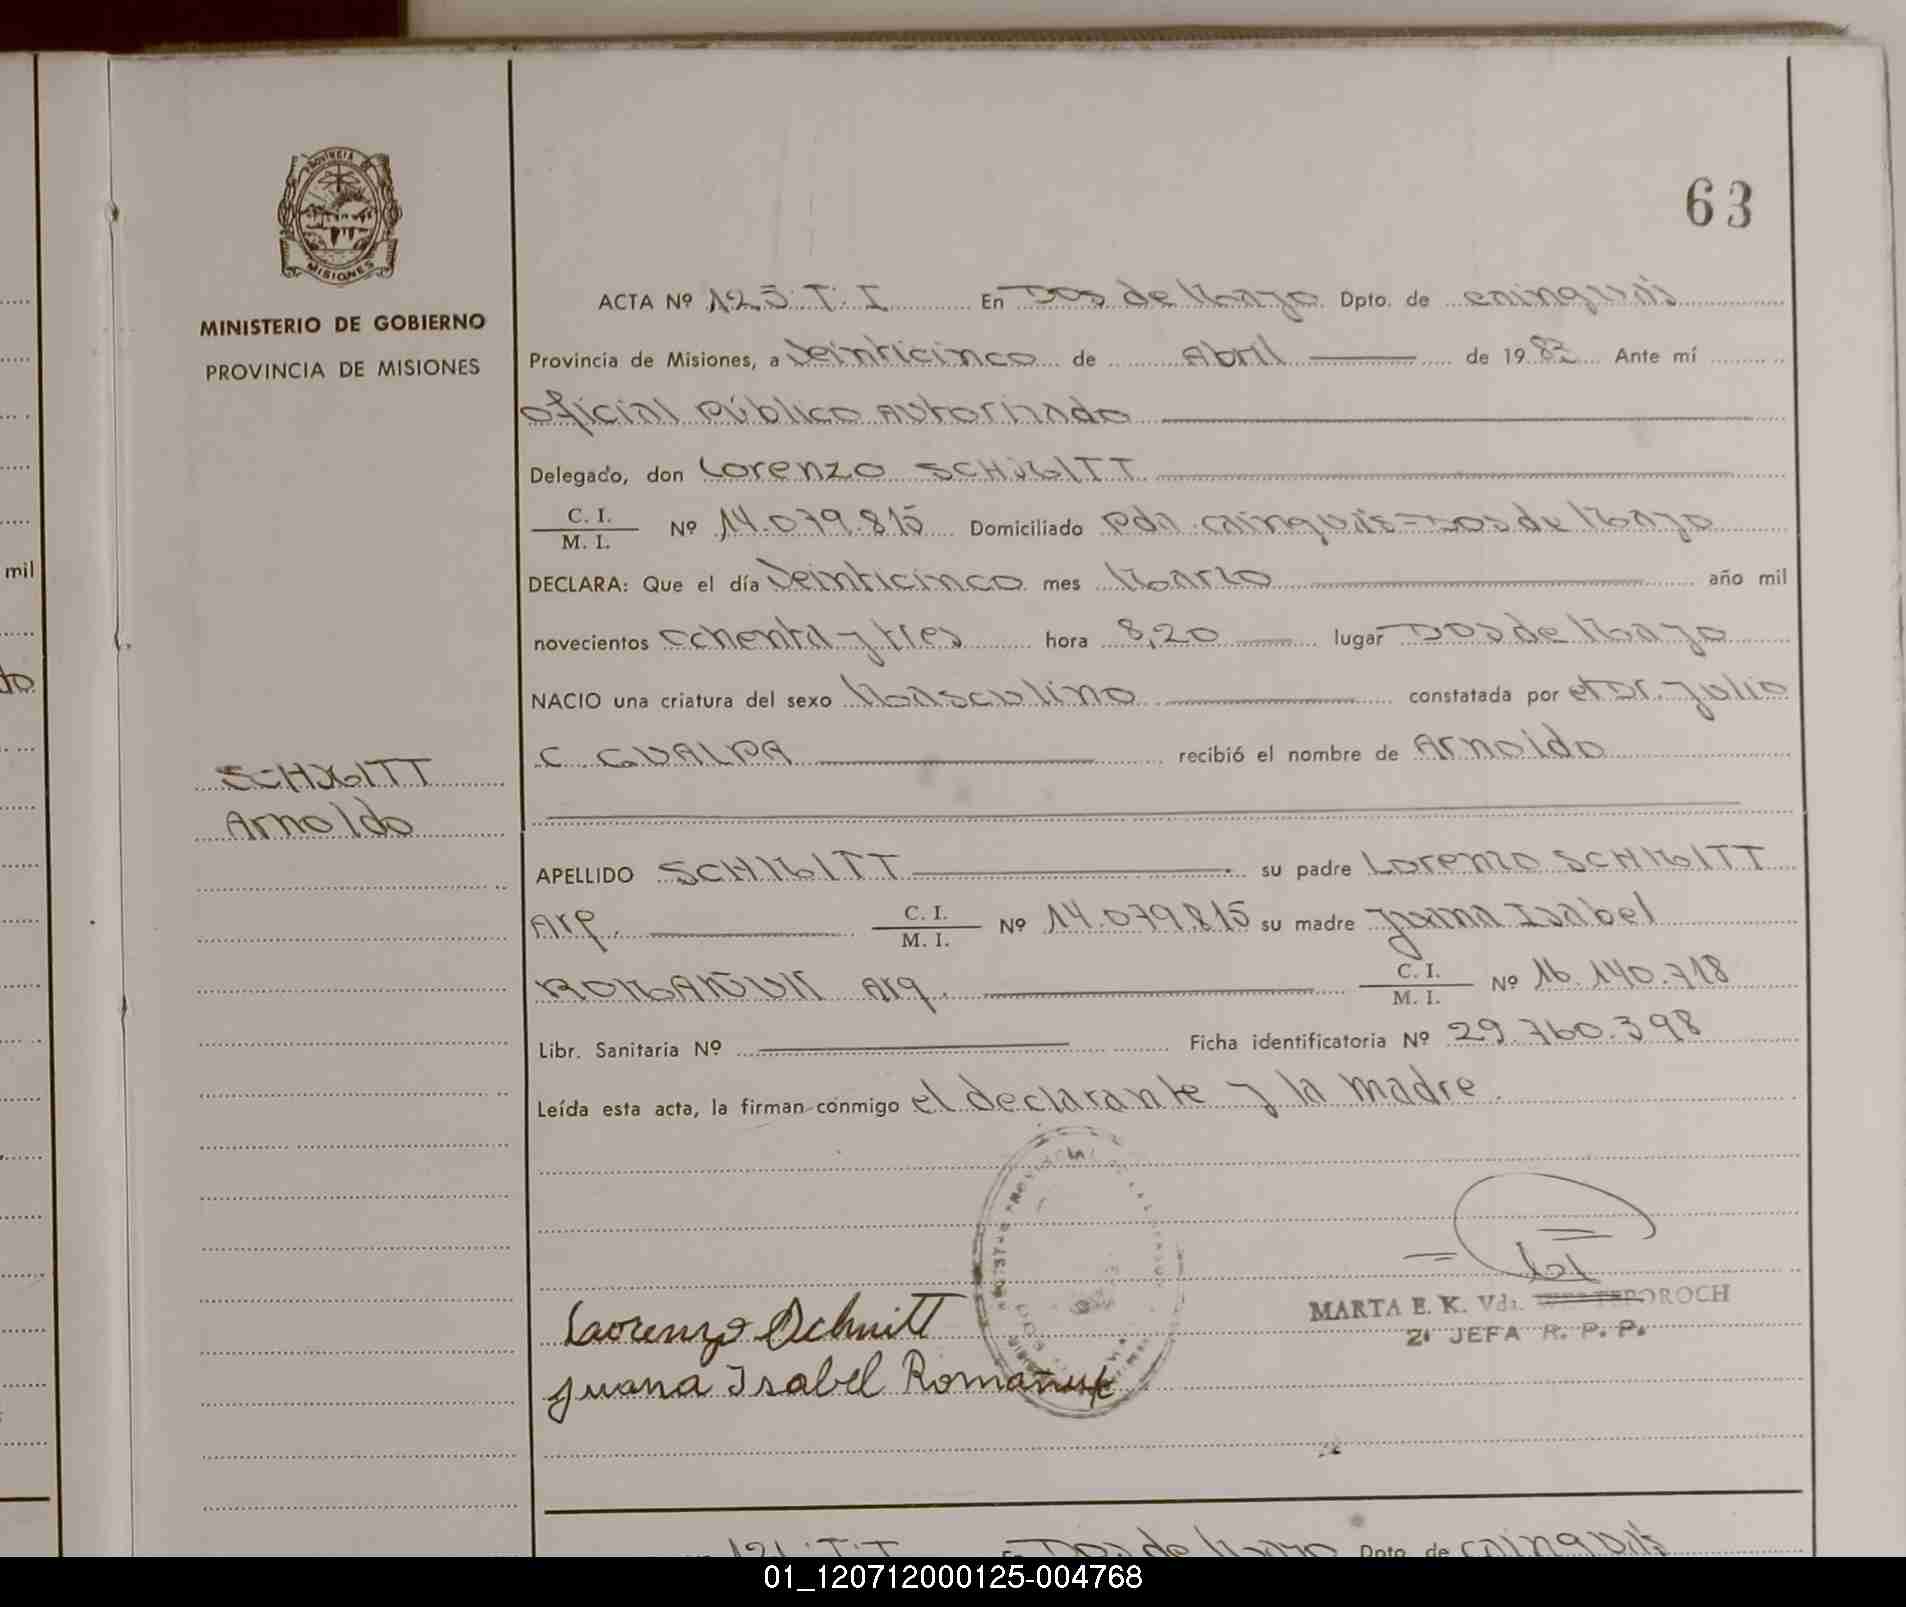 63
MINISTERIO DE GOBIERNO
PROVINCIA DE MISIONES
MISIONES
ACTA Nº 125 T. I En Dos de Mayo Dpto. de Cainguás
Provincia de Misiones, a Veinticinco de Abril de 1983 Ante mí
oficial Público Autorizado
Delegado, don Lorenzo SCHMITT
C. I.
M. I. Nº 14.079.815 Domiciliado Pda. Cainguás - Dos de Mayo
mil
DECLARA: Que el día Veinticinco mes Marzo año mil
novecientos ochenta y tres hora 8,20 lugar Dos de Mayo
NACIO una criatura del sexo Masculino constatada por el Dr. Julio
C. GUALPA recibió el nombre de Arnoldo
SCHMITT
Arnoldo
APELLIDO SCHMITT su padre Lorenzo SCHMITT
Arg. C. I.
M. I. Nº 14.079.815 su madre Juana Isabel
ROMAÑUK Arg. C. I.
M. I. Nº 16.140.718
Libr. Sanitaria Nº Ficha identificatoria Nº 29.760.398
Leída esta acta, la firman conmigo el declarante y la madre.
MARTA E. K. Vda. POROCH
2ª JEFA R. P. P.
Lorenzo Schmitt
Juana Isabel Romañuk
T. I Dos de Mayo Dpto. de Cainguás
01_120712000125-004768